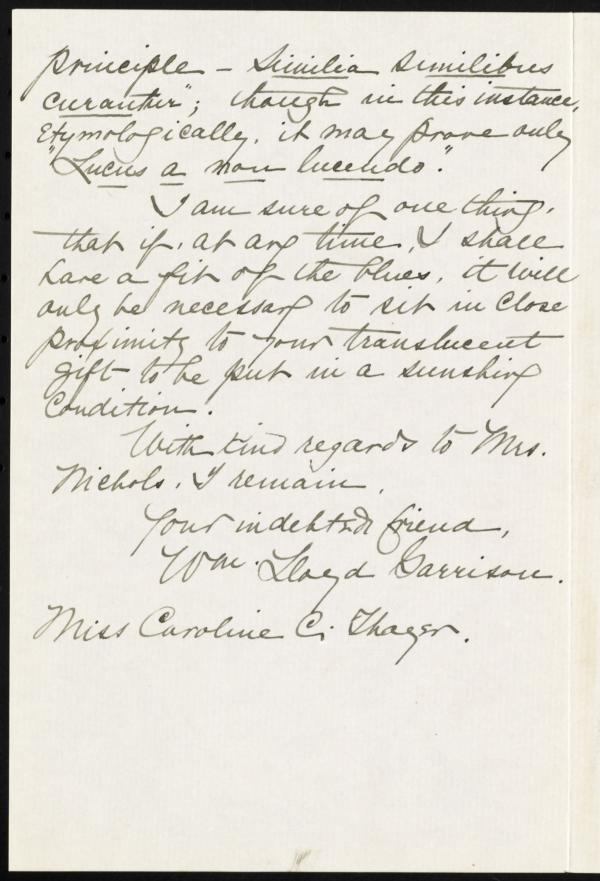 principle – Similia similibus
curantur"; though in this instance,
etymologically, it may prove only
"Lucus a non lucendo."
I am sure of one thing,
that if, at any time, I shall
have a fit of the blues, it will
only be necessary to sit in close
proximity to your translucent
gift to be put in a sunshiny
condition.
With kind regards to Mrs.
Nichols, I remain,
Your indebted friend,
Wm. Lloyd Garrison.
Miss Caroline C. Thayer.